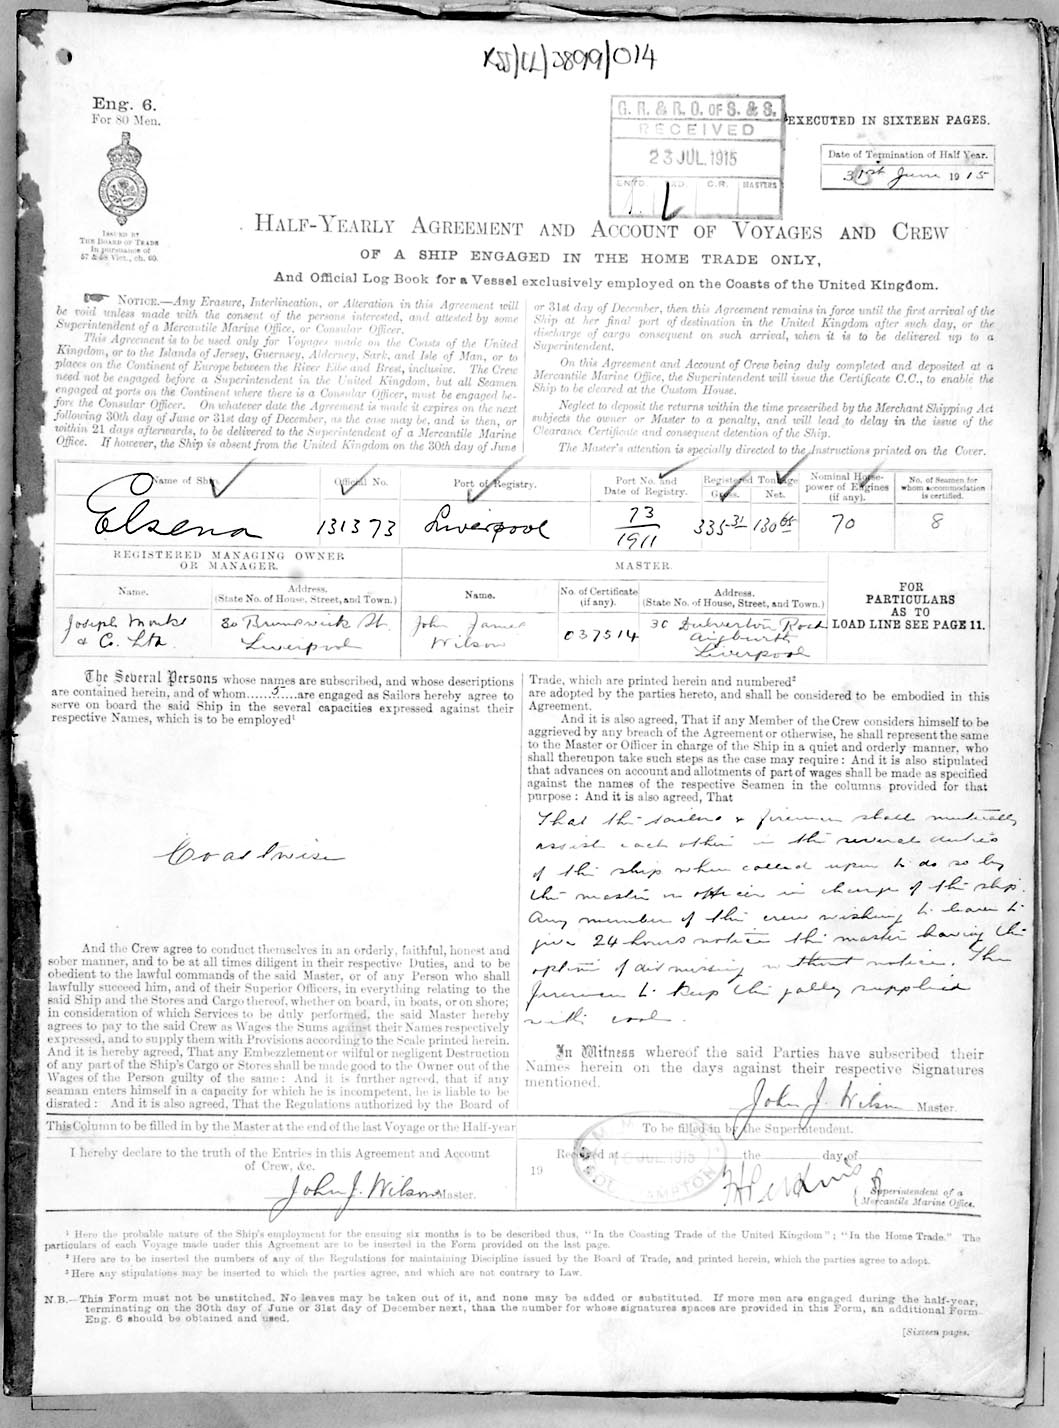 Eng. 6.
For 80 Men.
ISSUED BY
THE BOARD OF TRADE
In pursuance of
57 & 58 Vict., ch. 60.
G. R. & R. O. OF S. & S.
RECEIVED
23 JUL. 1915
C.R. MASTERS
EXECUTED IN SIXTEEN PAGES.
Date of Termination of Half Year.
31st June 1915
HALF-YEARLY AGREEMENT AND ACCOUNT OF VOYAGES AND CREW
OF A SHIP ENGAGED IN THE HOME TRADE ONLY,
And Official Log Book for a Vessel exclusively employed on the Coasts of the United Kingdom.
NOTICE.—Any Erasure, Interlineation, or Alteration in this Agreement will
be void unless made with the consent of the persons interested, and attested by some
Superintendent of a Mercantile Marine Office, or Consular Officer.
This Agreement is to be used only for Voyages made on the Coasts of the United
Kingdom, or to the Islands of Jersey, Guernsey, Alderney, Sark, and Isle of Man, or to
places on the Continent of Europe between the River Elbe and Brest, inclusive. The Crew
need not be engaged before a Superintendent in the United Kingdom, but all Seamen
engaged at ports on the Continent where there is a Consular Officer, must be engaged be-
fore the Consular Officer. On whatever date the Agreement is made it expires on the next
following 30th day of June or 31st day of December, as the case may be, and is then, or
within 21 days afterwards, to be delivered to the Superintendent of a Mercantile Marine
Office. If however, the Ship is absent from the United Kingdom on the 30th day of June
or 31st day of December, then this Agreement remains in force until the first arrival of the
Ship at her final port of destination in the United Kingdom after such day, or the
discharge of cargo consequent on such arrival, when it is to be delivered up to a
Superintendent.
On this Agreement and Account of Crew being duly completed and deposited at a
Mercantile Marine Office, the Superintendent will issue the Certificate C.C., to enable the
Ship to be cleared at the Custom House.
Neglect to deposit the returns within the time prescribed by the Merchant Shipping Act
subjects the owner or Master to a penalty, and will lead to delay in the issue of the
Clearance Certificate and consequent detention of the Ship.
The Master's attention is specially directed to the Instructions printed on the Cover.
Name of Ship. Official No. Port of Registry. Port No. and Date of Registry. Registered Tonnage Gross. Net. Nominal Horse-power of Engines (if any). No. of Seamen for whom accommodation is certified.
Elsena 131373 Liverpool 73/1911 335·31 130·65 70 8
REGISTERED MANAGING OWNER OR MANAGER. MASTER.
Name. Address. (State No. of House, Street, and Town.) Name. No. of Certificate (if any). Address. (State No. of House, Street, and Town.)
FOR PARTICULARS AS TO LOAD LINE SEE PAGE 11.
Joseph Monks & Co. Ltd. 30 Brunswick St. Liverpool John James Wilson 037514 30 Dulverton Road Aigburth Liverpool
The Several Persons whose names are subscribed, and whose descriptions
are contained herein, and of whom 5 are engaged as Sailors hereby agree to
serve on board the said Ship in the several capacities expressed against their
respective Names, which is to be employed¹
Coastwise
And the Crew agree to conduct themselves in an orderly, faithful, honest and
sober manner, and to be at all times diligent in their respective Duties, and to be
obedient to the lawful commands of the said Master, or of any Person who shall
lawfully succeed him, and of their Superior Officers, in everything relating to the
said Ship and the Stores and Cargo thereof, whether on board, in boats, or on shore;
in consideration of which Services to be duly performed, the said Master hereby
agrees to pay to the said Crew as Wages the Sums against their Names respectively
expressed, and to supply them with Provisions according to the Scale printed herein.
And it is hereby agreed, That any Embezzlement or wilful or negligent Destruction
of any part of the Ship's Cargo or Stores shall be made good to the Owner out of the
Wages of the Person guilty of the same: And it is further agreed, that if any
seaman enters himself in a capacity for which he is incompetent, he is liable to be
disrated: And it is also agreed, That the Regulations authorized by the Board of
Trade, which are printed herein and numbered²
are adopted by the parties hereto, and shall be considered to be embodied in this
Agreement.
And it is also agreed, That if any Member of the Crew considers himself to be
aggrieved by any breach of the Agreement or otherwise, he shall represent the same
to the Master or Officer in charge of the Ship in a quiet and orderly manner, who
shall thereupon take such steps as the case may require: And it is also stipulated
that advances on account and allotments of part of wages shall be made as specified
against the names of the respective Seamen in the columns provided for that
purpose: And it is also agreed, That
That the sailors & firemen shall mutually
assist each other in the several duties
of the ship when called upon to do so by
the master or officer in charge of the ship.
Any member of this crew wishing to leave to
give 24 hours notice the master having the
option of dismissing without notice. The
firemen to keep the galley supplied
with coal.
In Witness whereof the said Parties have subscribed their
Names herein on the days against their respective Signatures
mentioned.
John J. Wilson Master.
This Column to be filled in by the Master at the end of the last Voyage or the Half-year
I hereby declare to the truth of the Entries in this Agreement and Account
of Crew, &c.
John J. Wilson Master.
To be filled in by the Superintendent.
Received at the day of
19
Superintendent of a
Mercantile Marine Office.
¹ Here the probable nature of the Ship's employment for the ensuing six months is to be described thus, "In the Coasting Trade of the United Kingdom"; "In the Home Trade." The
particulars of each Voyage made under this Agreement are to be inserted in the Form provided on the last page.
² Here are to be inserted the numbers of any of the Regulations for maintaining Discipline issued by the Board of Trade, and printed herein, which the parties agree to adopt.
³ Here any stipulations may be inserted to which the parties agree, and which are not contrary to Law.
N.B.—This Form must not be unstitched. No leaves may be taken out of it, and none may be added or substituted. If more men are engaged during the half-year,
terminating on the 30th day of June or 31st day of December next, than the number for whose signatures spaces are provided in this Form, an additional Form
Eng. 6 should be obtained and used.
[Sixteen pages.